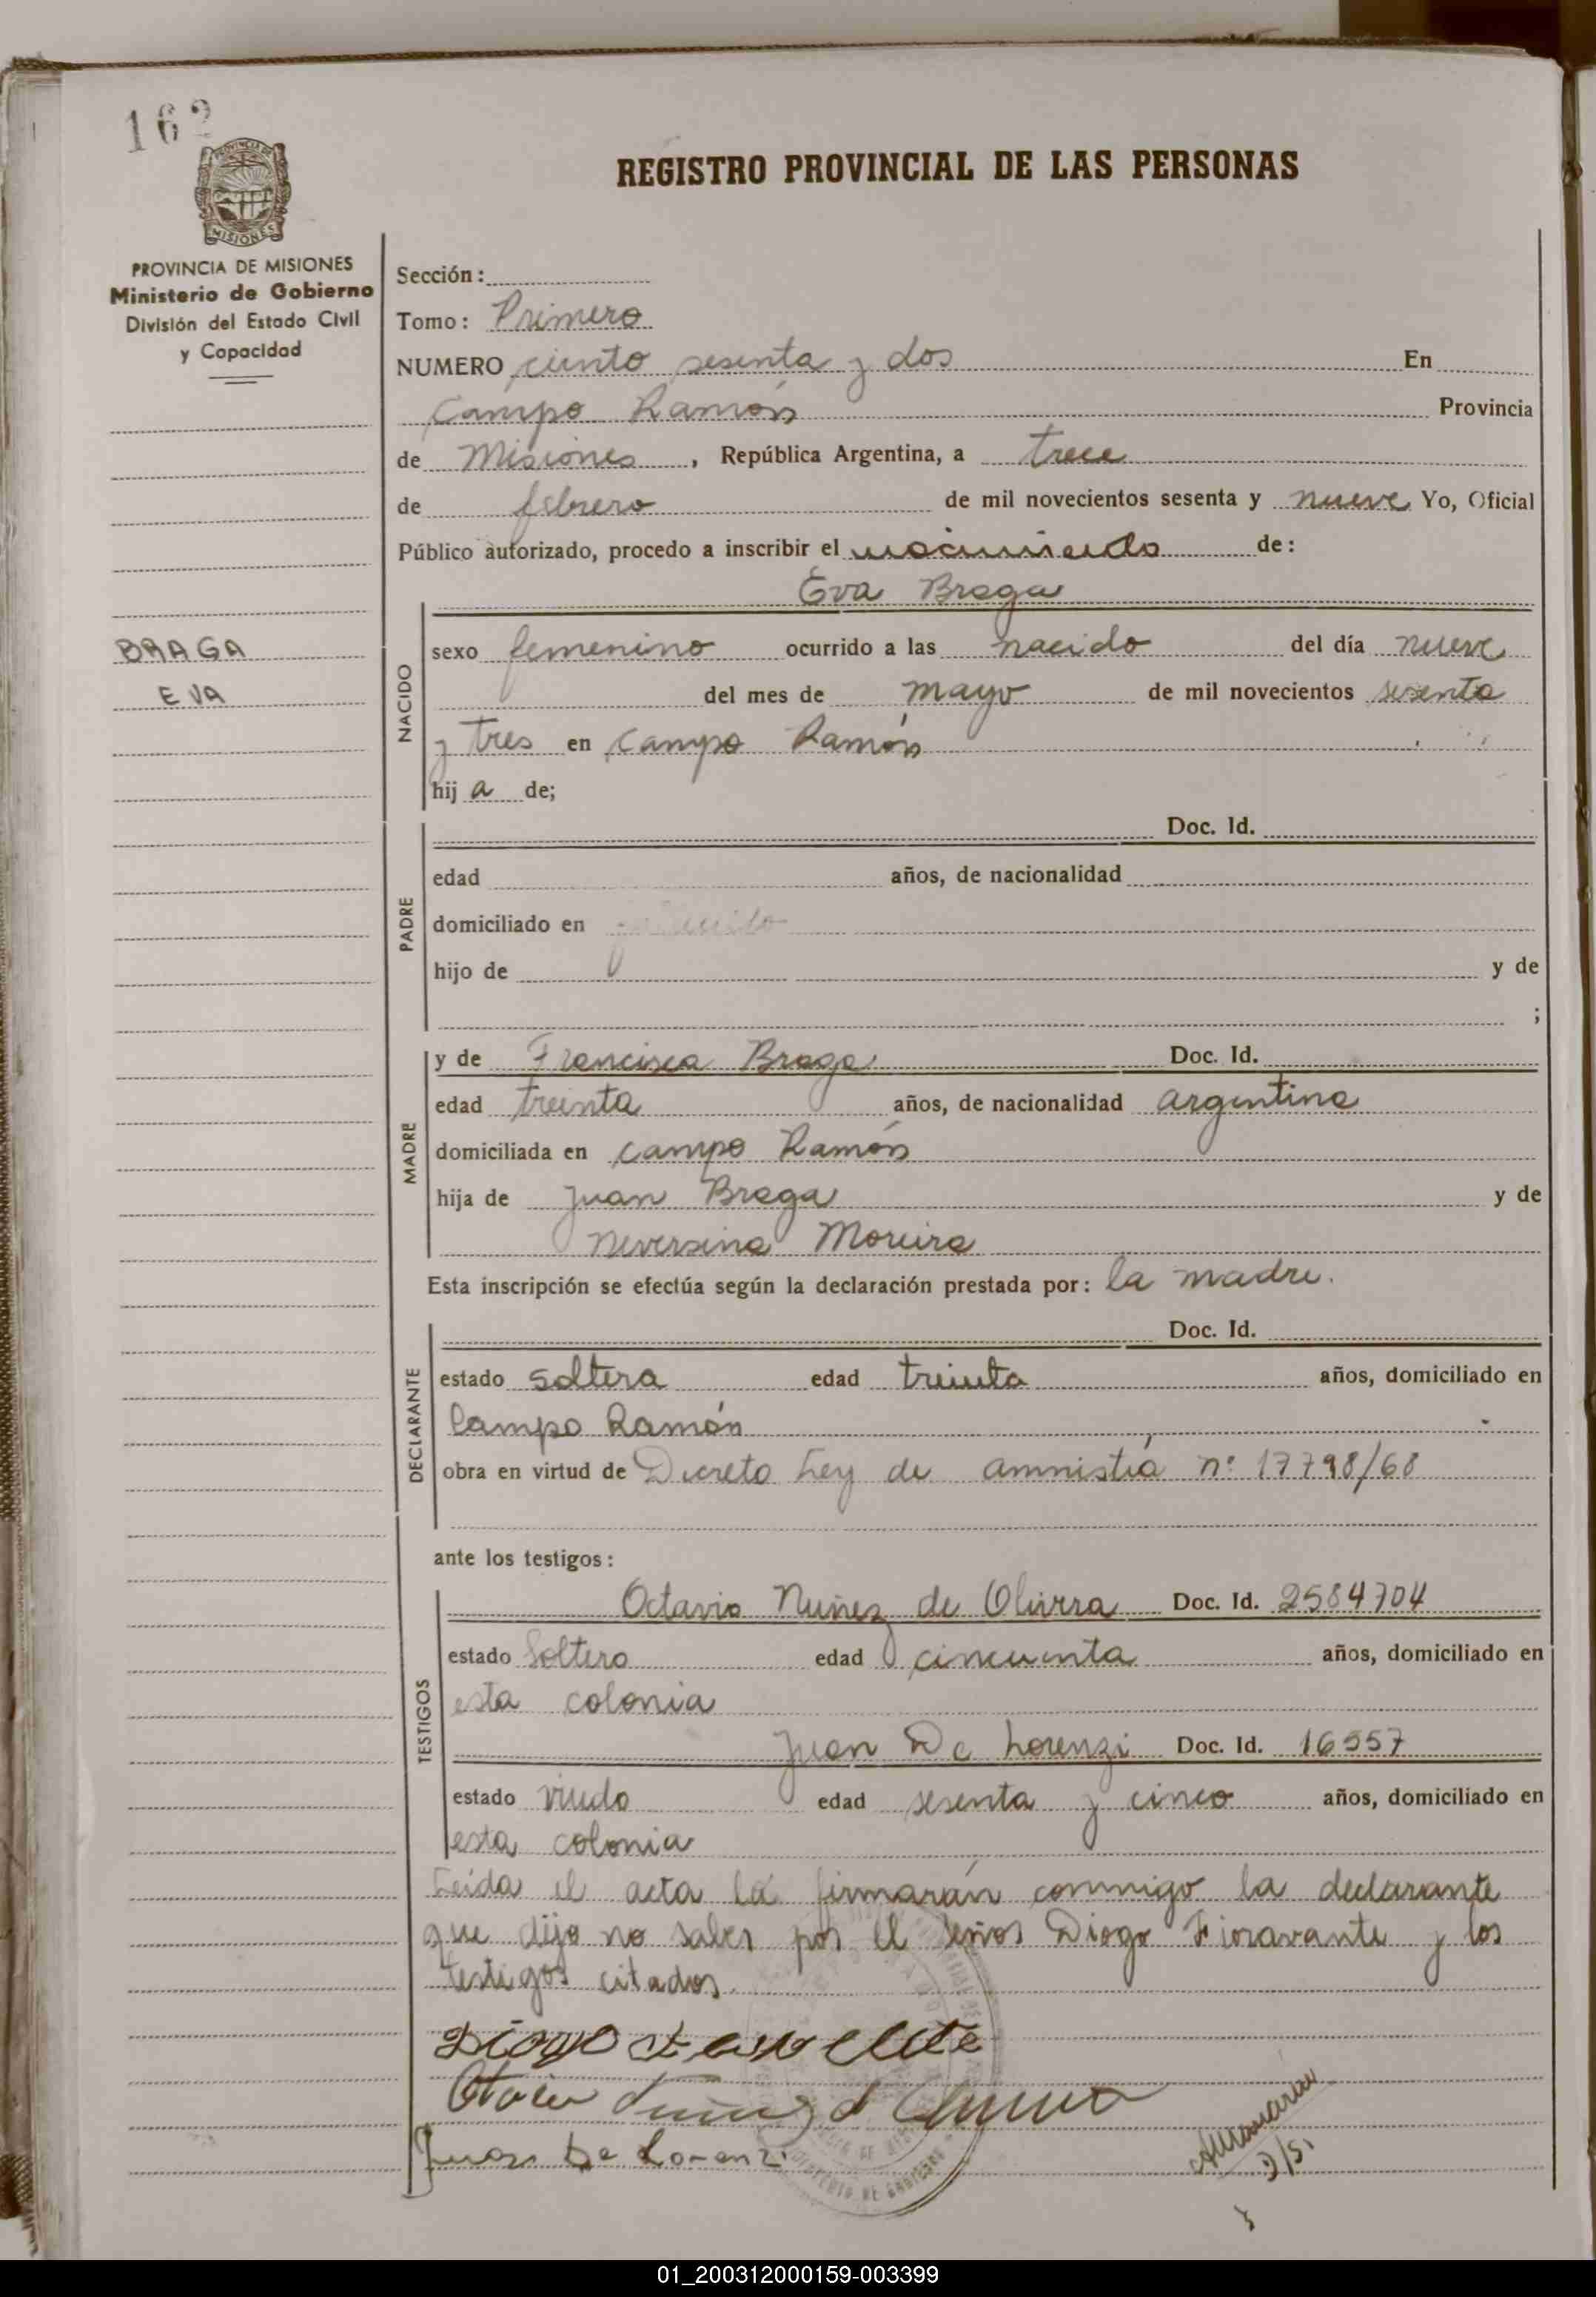 162
PROVINCIA DE
MISIONES
REGISTRO PROVINCIAL DE LAS PERSONAS
PROVINCIA DE MISIONES
Ministerio de Gobierno
División del Estado Civil
y Capacidad
BRAGA
EVA
Sección:
Tomo: Primero
NUMERO ciento sesenta y dos En
Campo Ramón Provincia
de Misiones, República Argentina, a trece
de febrero de mil novecientos sesenta y nueve Yo, Oficial
Público autorizado, procedo a inscribir el nacimiento de:
Eva Braga
NACIDO
sexo femenino ocurrido a las nacido del día nueve
del mes de mayo de mil novecientos sesenta
y tres en Campo Ramón
hij a de;
PADRE
Doc. Id.
edad años, de nacionalidad
domiciliado en
hijo de y de
;
MADRE
y de Francisca Braga Doc. Id.
edad treinta años, de nacionalidad argentina
domiciliada en campo Ramón
hija de Juan Braga y de
Neversina Moreira
Esta inscripción se efectúa según la declaración prestada por: la madre.
DECLARANTE
Doc. Id.
estado soltera edad treinta años, domiciliado en
Campo Ramón
obra en virtud de Decreto Ley de amnistía nº 17798/68
ante los testigos:
TESTIGOS
Octavio Nuñez de Olivera Doc. Id. 2584704
estado Soltero edad cincuenta años, domiciliado en
esta colonia
Juan De Lorenzi Doc. Id. 16557
estado viudo edad sesenta y cinco años, domiciliado en
esta colonia
Leída el acta la firmarán conmigo la declarante
que dijo no saber por el señor Diogo Fioravante y los
testigos citados.
Diogo
Juan De Lorenzi
01_200312000159-003399